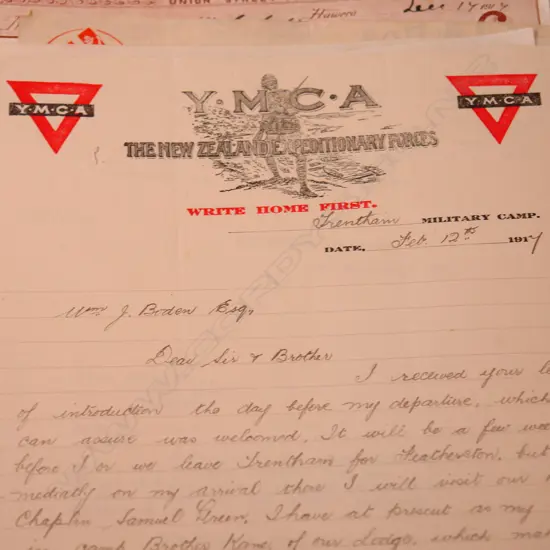 UNION STREET
Hawera
Y·M·C·A
Y·M·C·A
Y·M·C·A
THE NEW ZEALAND EXPEDITIONARY FORCES
WRITE HOME FIRST.
Trentham MILITARY CAMP.
DATE, Feb. 12th 1917
Wm J. Boden Esq,
Dear Sir & Brother
I received your
of introduction the day before my departure, which
can assure was welcomed. It will be a few
before I or we leave Trentham for Featherston, but
mediatly on my arrival there I will visit our
Chaplin Samuel Green. I have at present as my
in camp Brother Kane of our Lodge, which